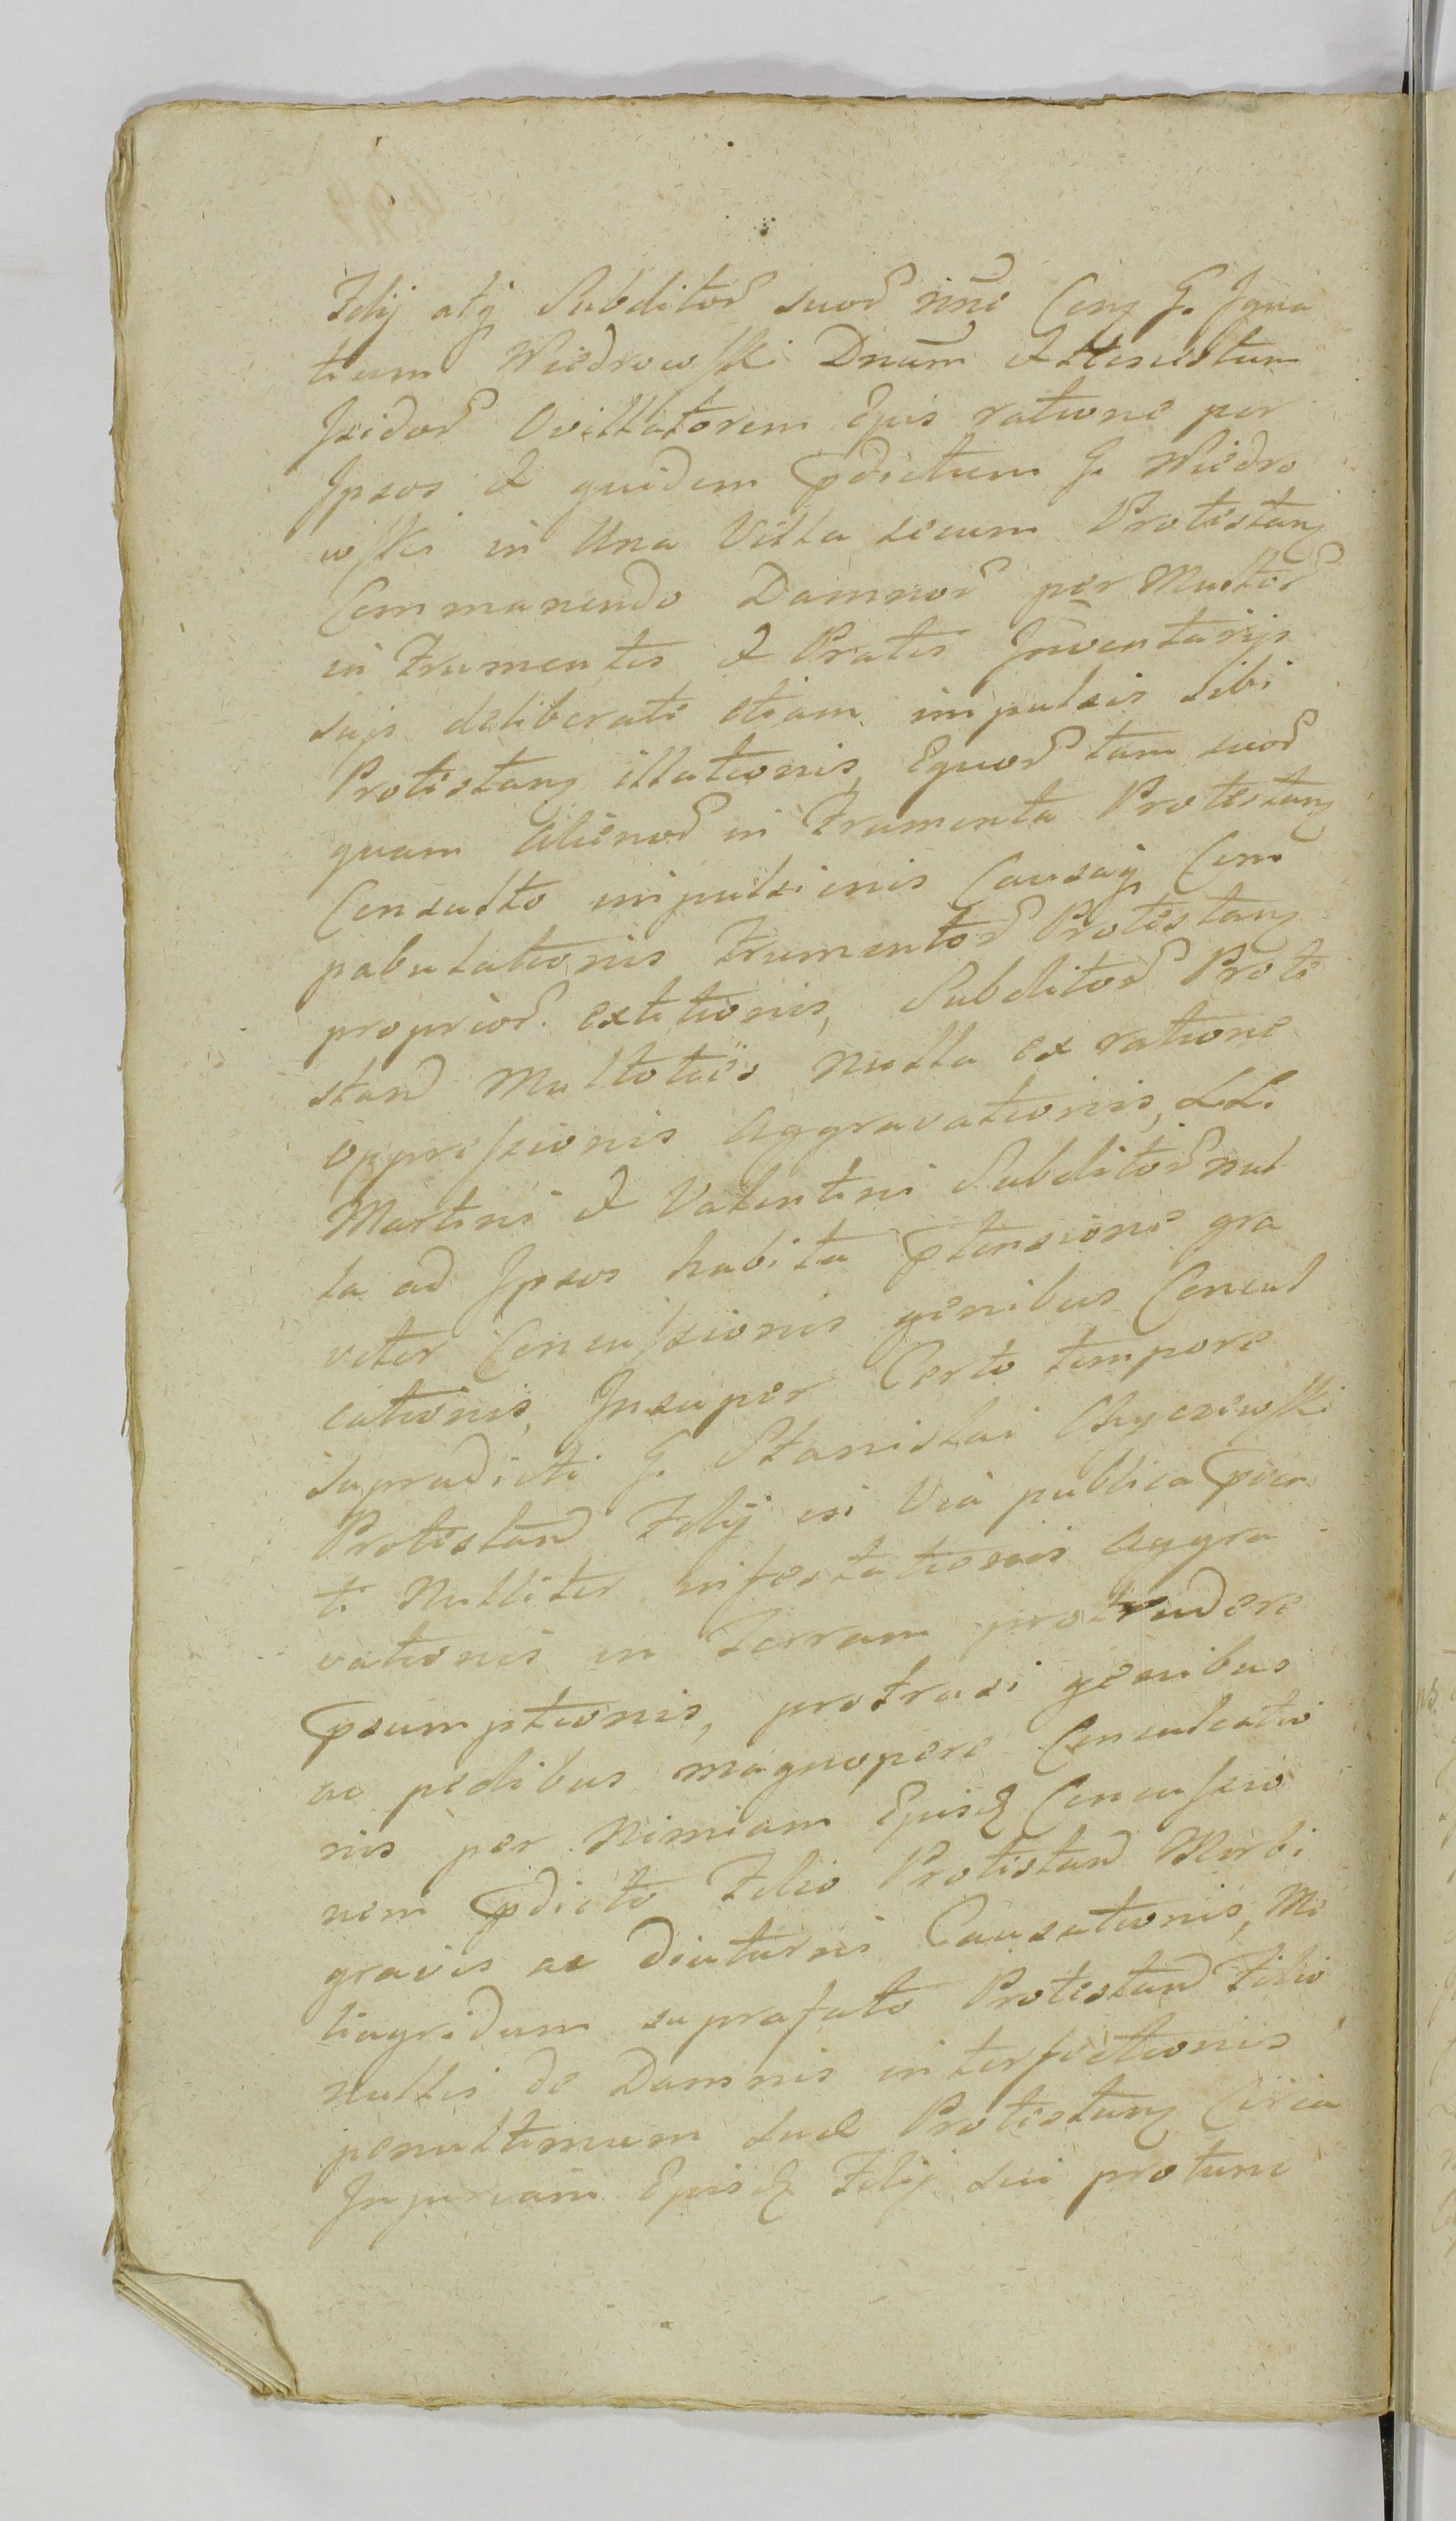 Filij atq Subditor suor nne Con G. Igna
tium Wiedrowski Dnum & Honestum
Isidor Ovillatorem Ejus ratione per
Ipsos & quidem pdictum G. Wiedro
wski in Una Villa secum Protestan
Commanendo Damnor per Multor
in Frumentis & Pratis Inventarijs
sujs deliberate etiam impulsis sibi
Protestan illationis, Equor tam suor
quam Alienor in Frumenta Protestan
Consulto impulsionis Causaq Com
pabulationis Frumentor Protestan
proprior. extitionis, Subditor Prote
stan Multoties nulla ex ratione
oppressionis Aggravationis, LL.
Martini & Valentini Subditor nul
la ad Ipsos habita ptensione gra
viter Concussionis genibus Concul
cationis, Insuper Certo tempore
supradicti G. Stanislai Chyczewski
Protestan Filij in Via publica pven
ti Nulliter infestationis Aggra
vationis in Terram protrudere
psumptionis, protrusi genibus
ac pedibus magnopere Conculcatio
nis per Nimiam Ejusd Concussio
nem pdicto Filio Protestan Morbi
gravis ac diuturni Causationis, Me
liagridum suprafato Protestan Filio
nullis de Damnis interfectionis
penultimum sua Protestan Circa
Injuriam Ejusd Filij sui protunc